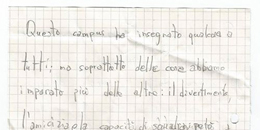 Questo campus ha insegnato qualcosa a
tutti; ma soprattutto delle cose abbiamo
imparato più delle altre: il divertimento,
l'amicizia, la capacità di